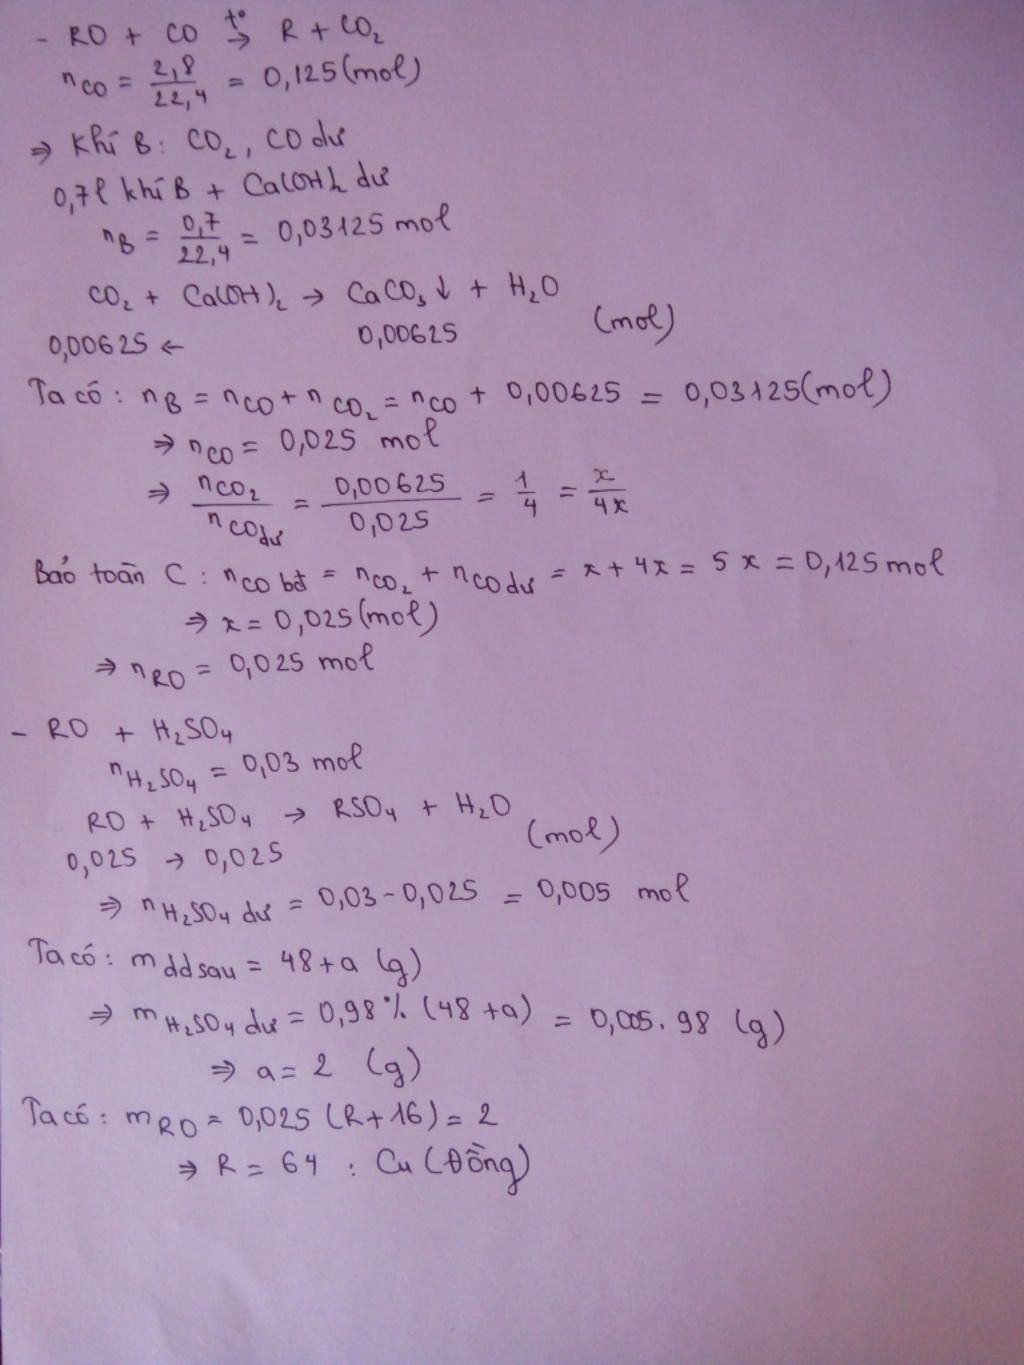 - RO + CO t°→ R + CO₂
nCO = 2,8/22,4 = 0,125 (mol)
⇒ Khí B: CO₂, CO dư
0,7l khí B + Ca(OH)₂ dư
nB = 0,7/22,4 = 0,03125 mol
CO₂ + Ca(OH)₂ → CaCO₃↓ + H₂O
0,00625 ← 0,00625 (mol)
Ta có: nB = nCO + nCO₂ = nCO + 0,00625 = 0,03125 (mol)
⇒ nCO = 0,025 mol
⇒ nCO₂/nCO dư = 0,00625/0,025 = 1/4 = x/4x
Bảo toàn C: nCO bđ = nCO₂ + nCO dư = x + 4x = 5x = 0,125 mol
⇒ x = 0,025 (mol)
⇒ nRO = 0,025 mol
- RO + H₂SO₄
nH₂SO₄ = 0,03 mol
RO + H₂SO₄ → RSO₄ + H₂O
0,025 → 0,025 (mol)
⇒ nH₂SO₄ dư = 0,03 - 0,025 = 0,005 mol
Ta có: mdd sau = 48 + a (g)
⇒ mH₂SO₄ dư = 0,98% (48 + a) = 0,005. 98 (g)
⇒ a = 2 (g)
Ta có: mRO = 0,025 (R + 16) = 2
⇒ R = 64 : Cu (Đồng)